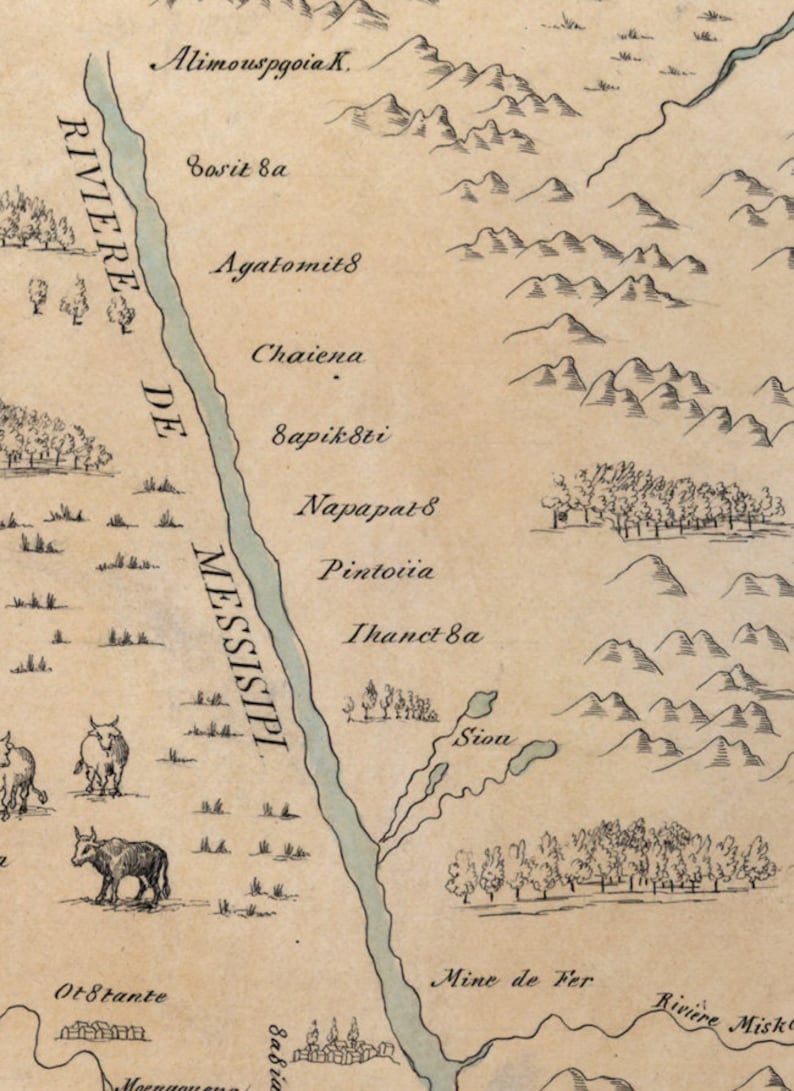 Alimouspgoiak.
RIVIERE DE MESSISIPI
8osit8a
Agatomit8
Chaiena
8apik8ti
Napapat8
Pintoüa
Ihanct8a
Siou
Mine de Fer
Ot8tante
Rivière